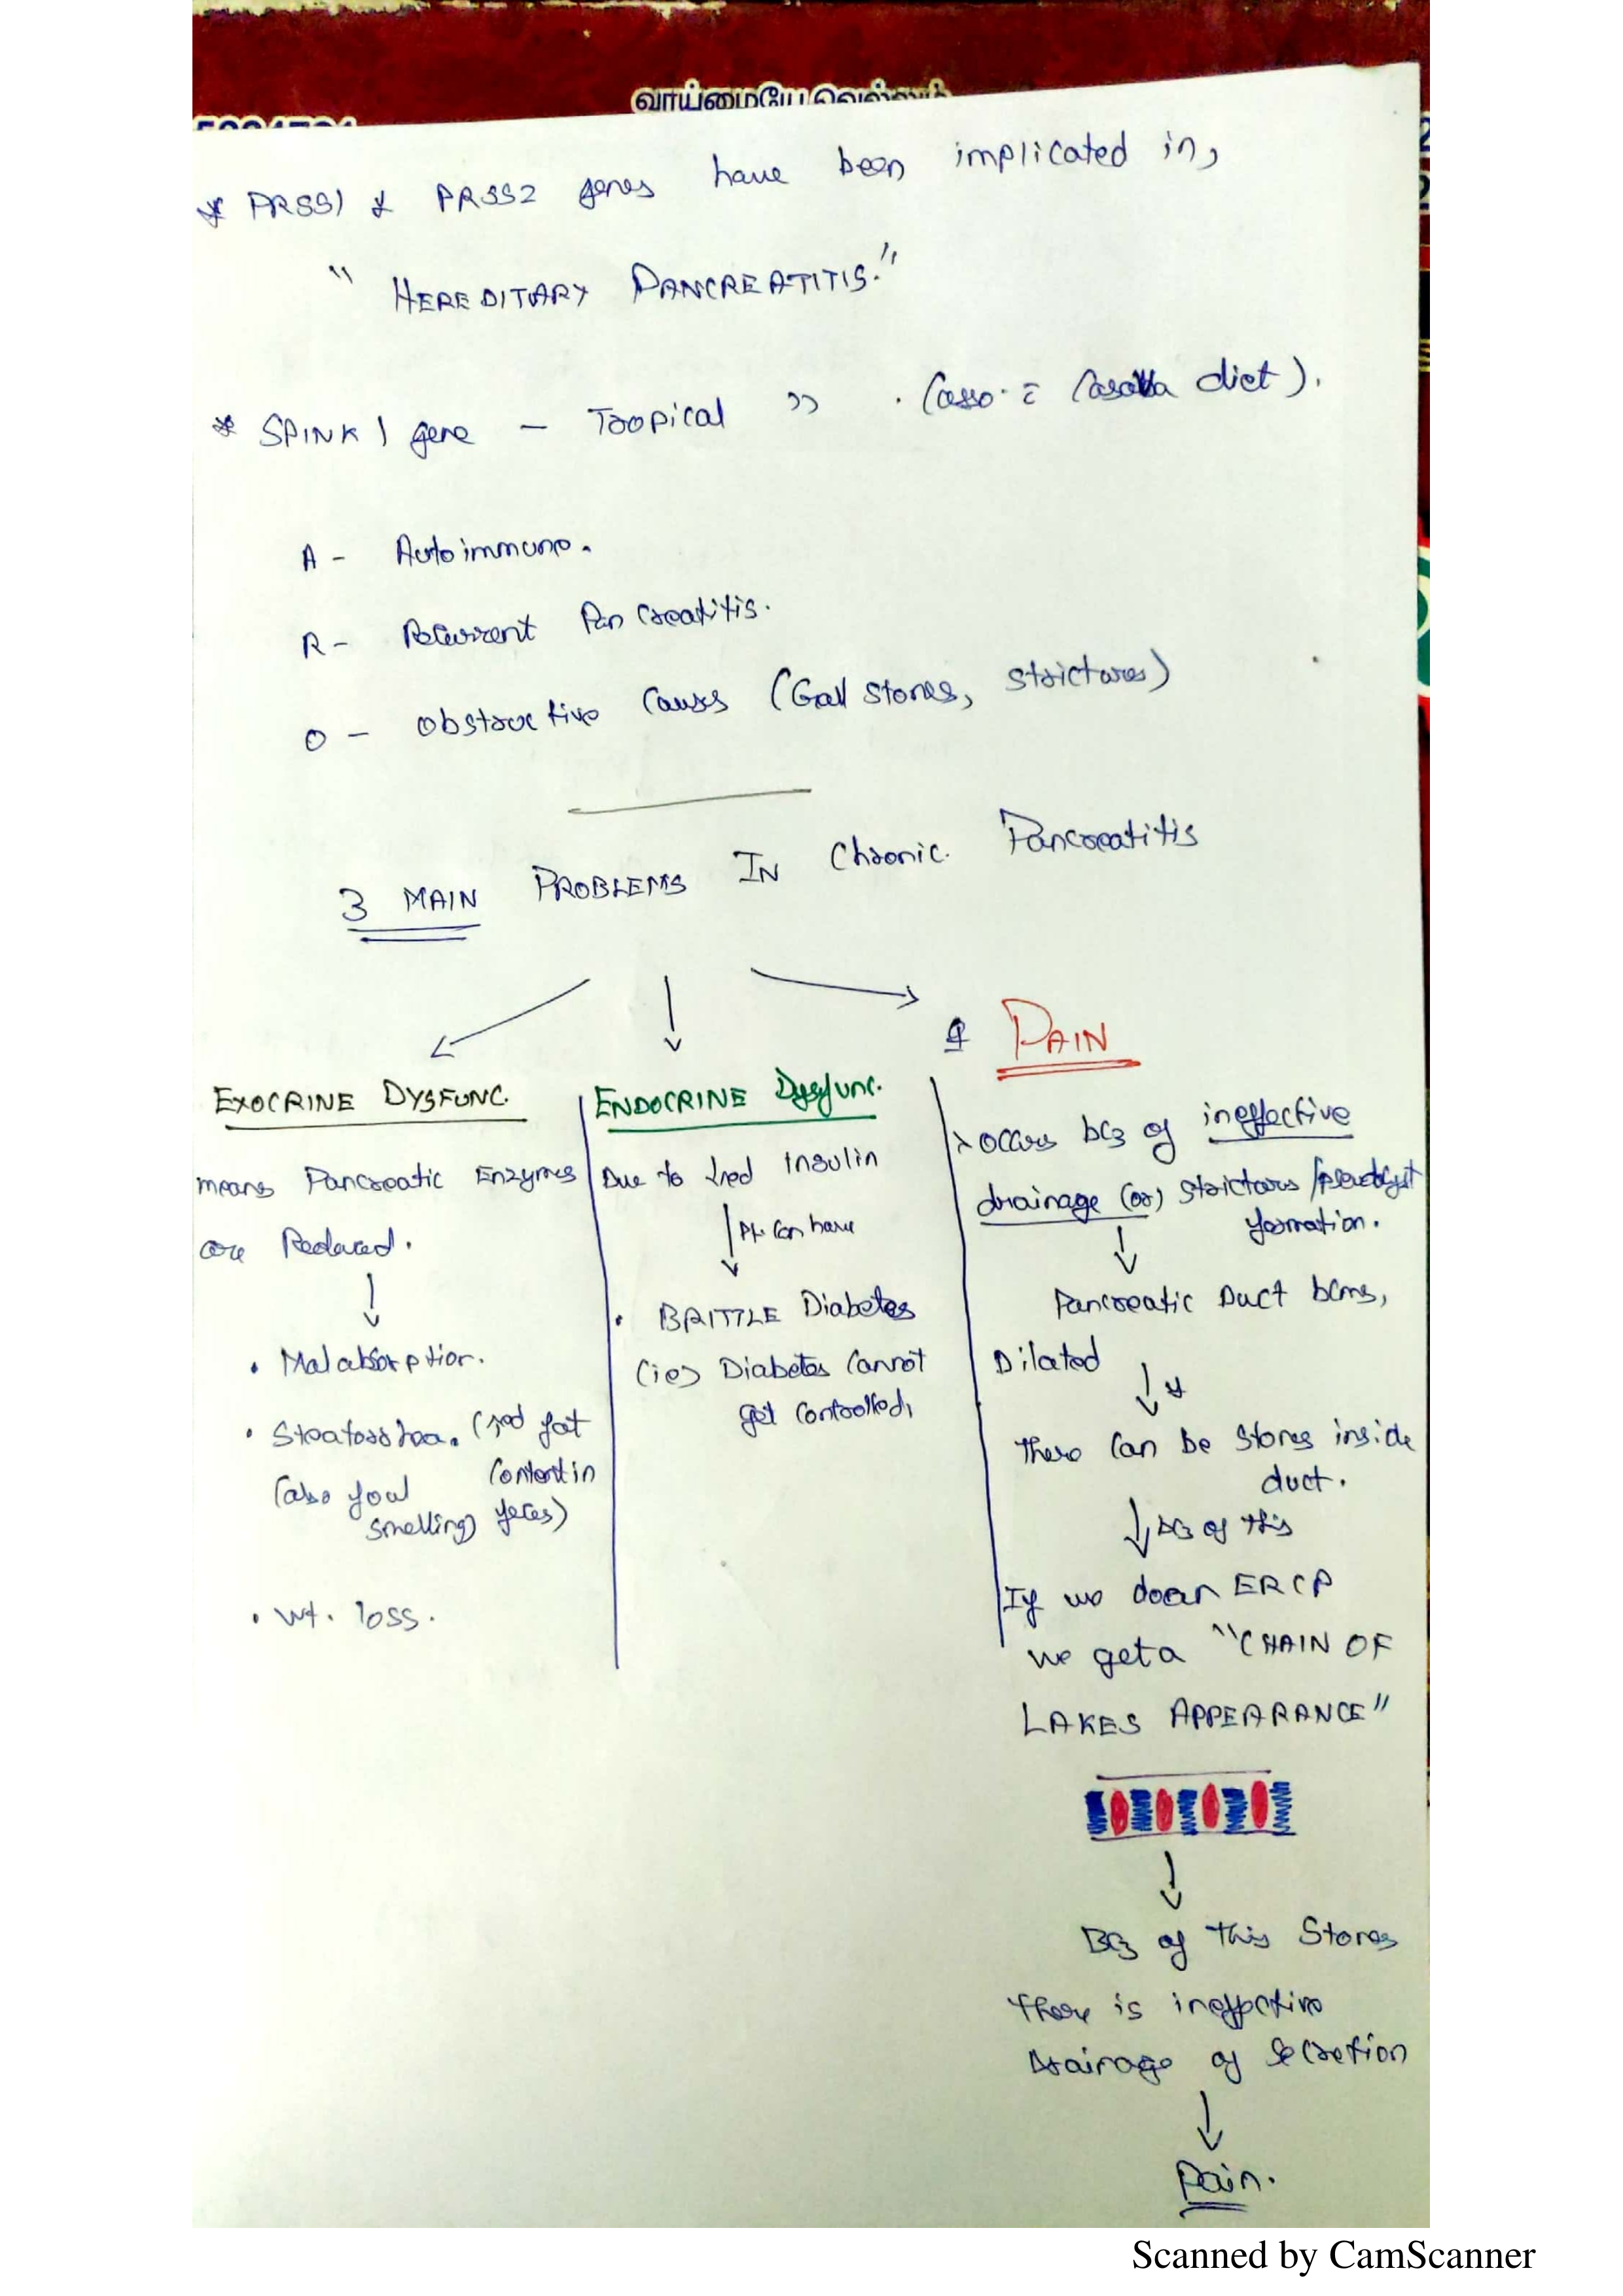 வாய்மையே வெல்லும்
* PRSS1 & PRSS2 genes have been implicated in,
" HEREDITARY PANCREATITIS."
* SPINK 1 gene - Tropical " . (asso. c̄ Casava diet).
A - Autoimmune.
R - Recurrent Pancreatitis.
O - Obstructive Causes (Gall stones, strictures)
3 MAIN PROBLEMS IN Chronic Pancreatitis
EXOCRINE DYSFUNC.
means Pancreatic Enzymes
are Reduced.
↓
• Malabsorption.
• Steatorrhea. (↑ed fat
content in
(also foul
smelling) feces)
• Wt. loss.
ENDOCRINE Dysfunc.
Due to ↓red Insulin
↓ Pt. can have
• BRITTLE Diabetes
(ie) Diabetes cannot
get controlled,
PAIN
→ occurs bcz of ineffective
drainage (or) strictures / pseudocyst
formation.
↓
Pancreatic Duct bcms,
Dilated
↓ *
There can be stones inside
duct.
↓ bcz of this
If we do an ERCP
we get a "CHAIN OF
LAKES APPEARANCE"
↓
Bcz of this Stones
there is ineffective
Drainage of Secretion
↓
Pain.
Scanned by CamScanner